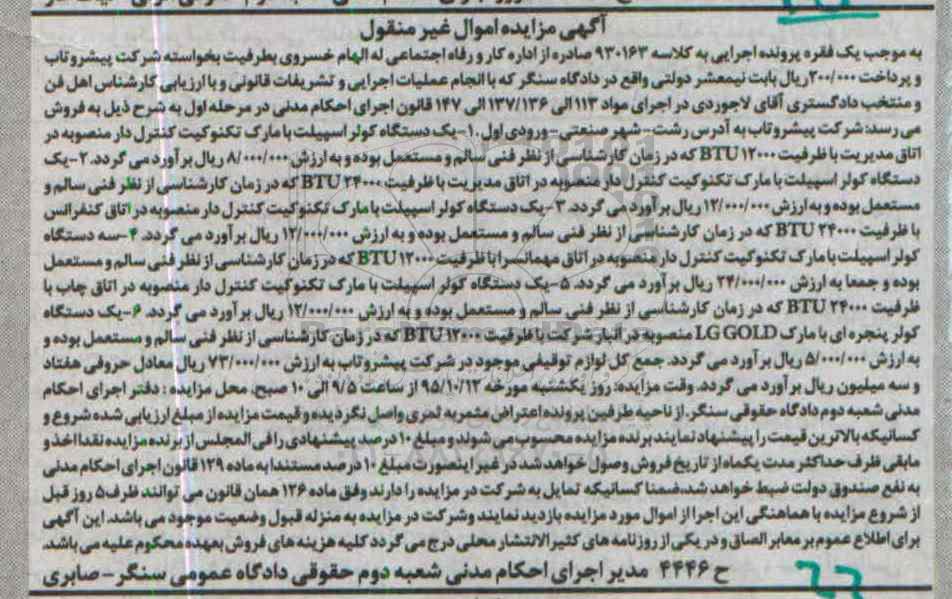 آگهی مزایده اموال غیر منقول
به موجب یک فقره پرونده اجرایی به کلاسه ۹۳۰۱۶۳ صادره از اداره کار و رفاه اجتماعی له الهام خسروی بطرفیت بخواسته شرکت پیشرو تاب
و پرداخت ۲۰۰/۰۰۰ریال بابت نیمعشر دولتی واقع در دادگاه سنگر که با انجام عملیات اجرایی و تشریفات قانونی و با ارزیابی کارشناس اهل فن
و منتخب دادگستری آقای لاجوردی در اجرای مواد ۱۱۳ الی ۱۳۷/۱۳۶ الی ۱۴۷ قانون اجرای احکام مدنی در مرحله اول به شرح ذیل به فروش
می رسد: شرکت پیشرو تاب به آدرس رشت- شهر صنعتی- ورودی اول ۱- یک دستگاه کولر اسپیلت با مارک تکنوکیت کنترل دار منصوبه در
اتاق مدیریت با ظرفیت ۱۲۰۰۰ BTU که در زمان کارشناسی از نظر فنی سالم و مستعمل بوده و به ارزش ۸/۰۰۰/۰۰۰ ریال برآورد می گردد. ۲- یک
دستگاه کولر اسپیلت با مارک تکنوکیت کنترل دار منصوبه در اتاق مدیریت با ظرفیت ۲۴۰۰۰ BTU که در زمان کارشناسی از نظر فنی سالم و
مستعمل بوده و به ارزش ۱۲/۰۰۰/۰۰۰ ریال برآورد می گردد. ۳- یک دستگاه کولر اسپیلت با مارک تکنوکیت کنترل دار منصوبه در اتاق کنفرانس
با ظرفیت ۲۴۰۰۰ BTU که در زمان کارشناسی از نظر فنی سالم و مستعمل بوده و به ارزش ۱۲/۰۰۰/۰۰۰ ریال برآورد می گردد. ۴-سه دستگاه
کولر اسپیلت با مارک تکنوکیت کنترل دار منصوبه در اتاق مهمانسرا با ظرفیت ۱۲۰۰۰ BTU که در زمان کارشناسی از نظر فنی سالم و مستعمل
بوده و جمعا به ارزش ۲۴/۰۰۰/۰۰۰ ریال برآورد می گردد. ۵- یک دستگاه کولر اسپیلت با مارک تکنوکیت کنترل دار منصوبه در اتاق چاپ با
ظرفیت ۲۴۰۰۰ BTU که در زمان کارشناسی از نظر فنی سالم و مستعمل بوده و به ارزش ۱۲/۰۰۰/۰۰۰ ریال برآورد می گردد. ۶- یک دستگاه
کولر پنجره ای با مارک LG GOLD منصوبه در انبار شرکت با ظرفیت ۱۲۰۰۰ BTU که در زمان کارشناسی از نظر فنی سالم و مستعمل بوده و
به ارزش ۵/۰۰۰/۰۰۰ ریال برآورد می گردد. جمع کل لوازم توقیفی موجود در شرکت پیشرو تاب به ارزش ۷۳/۰۰۰/۰۰۰ ریال معادل حروفی هفتاد
و سه میلیون ریال برآورد می گردد. وقت مزایده: روز یکشنبه مورخه ۹۵/۱۰/۱۲ از ساعت ۹/۵ الی ۱۰ صبح. محل مزایده : دفتر اجرای احکام
مدنی شعبه دوم دادگاه حقوقی سنگر. از ناحیه طرفین پرونده اعتراض مثمربه ثمری واصل نگردیده و قیمت مزایده از مبلغ ارزیابی شده شروع و
کسانیکه بالاترین قیمت را پیشنهاد نمایند برنده مزایده محسوب می شوند و مبلغ ۱۰ درصد پیشنهادی را فی المجلس از برنده مزایده نقدا اخذ و
مابقی ظرف حداکثر مدت یکماه از تاریخ فروش وصول خواهد شد در غیر اینصورت مبلغ ۱۰ درصد مستندا به ماده ۱۲۹ قانون اجرای احکام مدنی
به نفع صندوق دولت ضبط خواهد شد. ضمنا کسانیکه تمایل به شرکت در مزایده را دارند وفق ماده ۱۲۶ همان قانون می توانند ظرف ۵ روز قبل
از شروع مزایده با هماهنگی این اجرا از اموال مورد مزایده بازدید نمایند و شرکت در مزایده به منزله قبول وضعیت موجود می باشد. این آگهی
برای اطلاع عموم بر معابر الصاق و در یکی از روزنامه های کثیر الانتشار محلی درج می گردد کلیه هزینه های فروش بعهده محکوم علیه می باشد.
ح ۴۴۴۶ مدیر اجرای احکام مدنی شعبه دوم حقوقی دادگاه عمومی سنگر- صابری